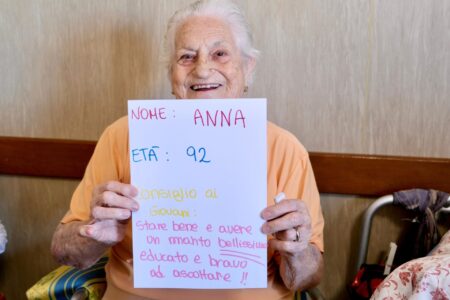 NOME: ANNA
ETÀ: 92
Consiglio ai
Giovani:
Stare bene e avere
un marito bellissimo
educato e bravo
ad ascoltare!!